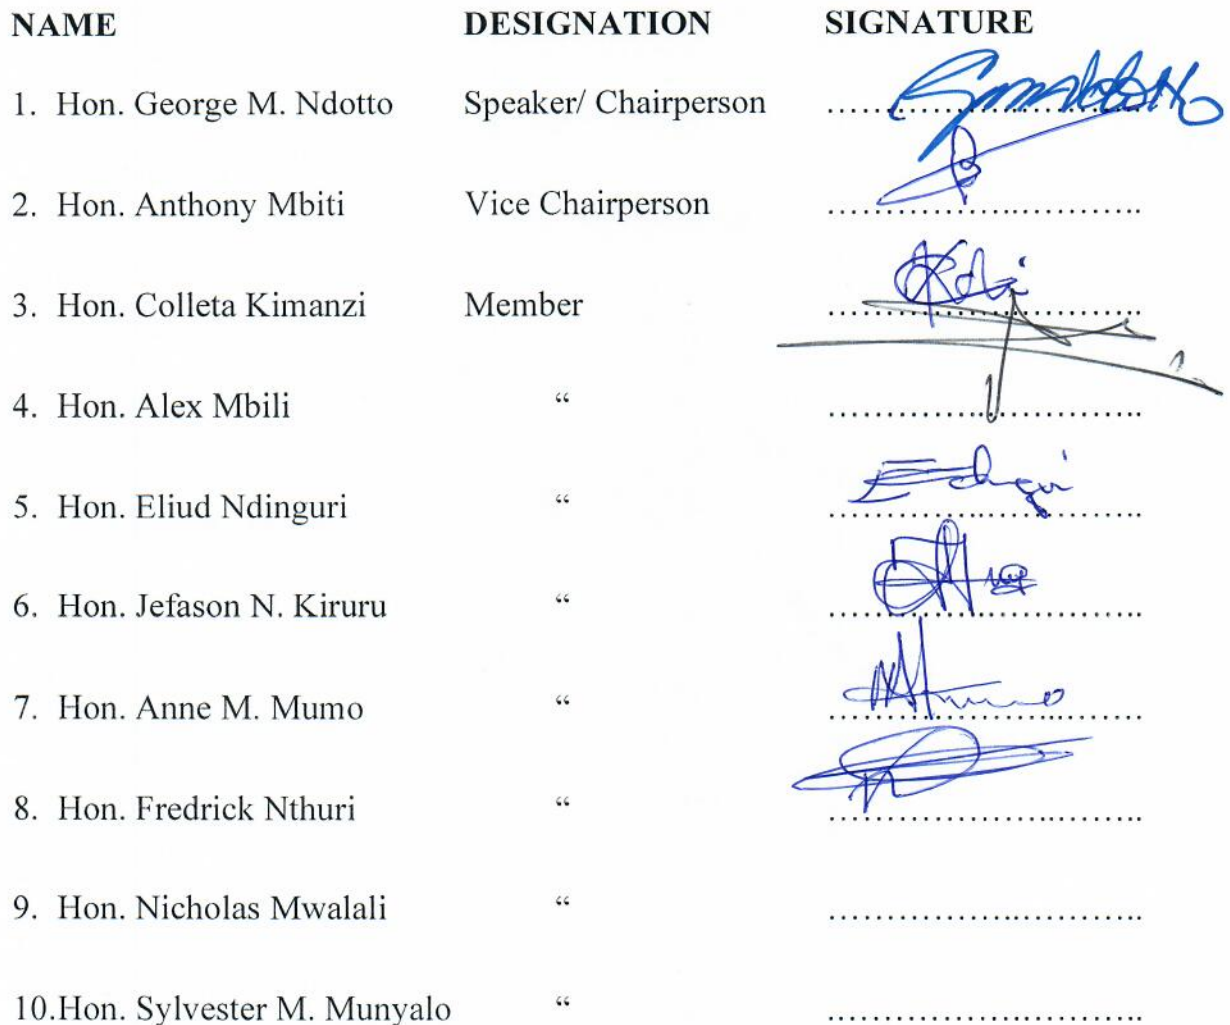 NAME DESIGNATION SIGNATURE
1. Hon. George M. Ndotto Speaker/ Chairperson ..............................
2. Hon. Anthony Mbiti Vice Chairperson ..............................
3. Hon. Colleta Kimanzi Member ..............................
4. Hon. Alex Mbili “ ..............................
5. Hon. Eliud Ndinguri “ ..............................
6. Hon. Jefason N. Kiruru “ ..............................
7. Hon. Anne M. Mumo “ ..............................
8. Hon. Fredrick Nthuri “ ..............................
9. Hon. Nicholas Mwalali “ ..............................
10.Hon. Sylvester M. Munyalo “ ..............................